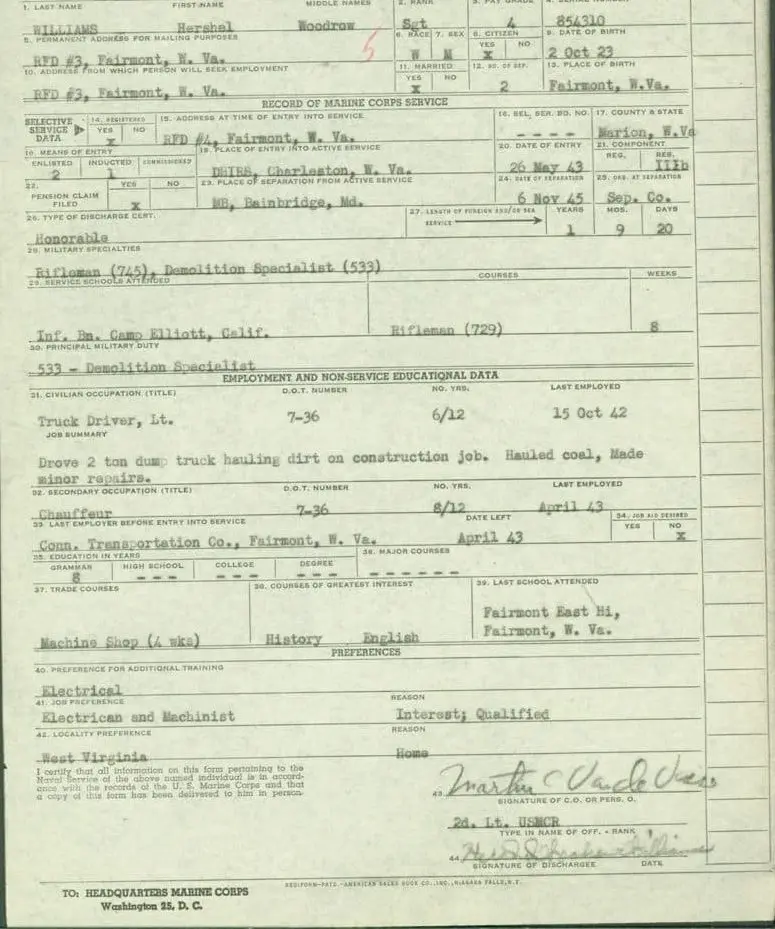 1. LAST NAME FIRST NAME MIDDLE NAMES 2. RANK 3. PAY GRADE 4. SERIAL NUMBER
WILLIAMS Hershel Woodrow Sgt 4 854310
5. PERMANENT ADDRESS FOR MAILING PURPOSES 6. RACE 7. SEX 8. CITIZEN 9. DATE OF BIRTH
YES NO
RFD #3, Fairmont, W. Va. W M X 2 Oct 23
5
10. ADDRESS FROM WHICH PERSON WILL SEEK EMPLOYMENT 11. MARRIED 12. NO. OF DEP. 13. PLACE OF BIRTH
YES NO
RFD #3, Fairmont, W. Va. X 2 Fairmont, W.Va.
RECORD OF MARINE CORPS SERVICE
SELECTIVE SERVICE DATA 14. REGISTERED 15. ADDRESS AT TIME OF ENTRY INTO SERVICE 16. SEL. SER. BD. NO. 17. COUNTY & STATE
YES NO
X RFD #4, Fairmont, W. Va. - - - - Marion, W.Va
18. MEANS OF ENTRY 19. PLACE OF ENTRY INTO ACTIVE SERVICE 20. DATE OF ENTRY 21. COMPONENT
ENLISTED INDUCTED COMMISSIONED REG. RES.
2 1 Charleston, W. Va. 26 May 43 IIIb
22. PENSION CLAIM FILED YES NO 23. PLACE OF SEPARATION FROM ACTIVE SERVICE 24. DATE OF SEPARATION 25. ORG. AT SEPARATION
X MB, Bainbridge, Md. 6 Nov 45 Sep. Co.
26. TYPE OF DISCHARGE CERT. 27. LENGTH OF FOREIGN AND/OR SEA SERVICE YEARS MOS. DAYS
Honorable 1 9 20
28. MILITARY SPECIALTIES
Rifleman (745), Demolition Specialist (533)
29. SERVICE SCHOOLS ATTENDED COURSES WEEKS
Inf. Bn. Camp Elliott, Calif. Rifleman (729) 8
30. PRINCIPAL MILITARY DUTY
533 - Demolition Specialist
EMPLOYMENT AND NON-SERVICE EDUCATIONAL DATA
31. CIVILIAN OCCUPATION (TITLE) D.O.T. NUMBER NO. YRS. LAST EMPLOYED
Truck Driver, Lt. 7-36 6/12 15 Oct 42
JOB SUMMARY
Drove 2 ton dump truck hauling dirt on construction job. Hauled coal, Made
minor repairs.
32. SECONDARY OCCUPATION (TITLE) D.O.T. NUMBER NO. YRS. LAST EMPLOYED
Chauffeur 7-36 8/12 April 43
33. LAST EMPLOYER BEFORE ENTRY INTO SERVICE DATE LEFT 34. JOB AID DESIRED
YES NO
Conn. Transportation Co., Fairmont, W. Va. April 43 X
35. EDUCATION IN YEARS 36. MAJOR COURSES
GRAMMAR HIGH SCHOOL COLLEGE DEGREE
8 - - - - - - - - - - - - - - -
37. TRADE COURSES 38. COURSES OF GREATEST INTEREST 39. LAST SCHOOL ATTENDED
Fairmont East Hi,
Machine Shop (4 wks) History English Fairmont, W. Va.
PREFERENCES
40. PREFERENCE FOR ADDITIONAL TRAINING
Electrical
41. JOB PREFERENCE REASON
Electrican and Machinist Interest; Qualified
42. LOCALITY PREFERENCE REASON
West Virginia Home
I certify that all information on this form pertaining to the
Naval Service of the above named individual is in accord-
ance with the records of the U. S. Marine Corps and that
a copy of this form has been delivered to him in person.
43. Martin C
SIGNATURE OF C.O. OR PERS. O.
2d. Lt. USMCR
TYPE IN NAME OF OFF. - RANK
44. Hershel Woodrow Williams
SIGNATURE OF DISCHARGEE DATE
REDIFORM-PATD.-AMERICAN SALES BOOK CO., INC., NIAGARA FALLS, N.Y.
TO: HEADQUARTERS MARINE CORPS
Washington 25, D. C.